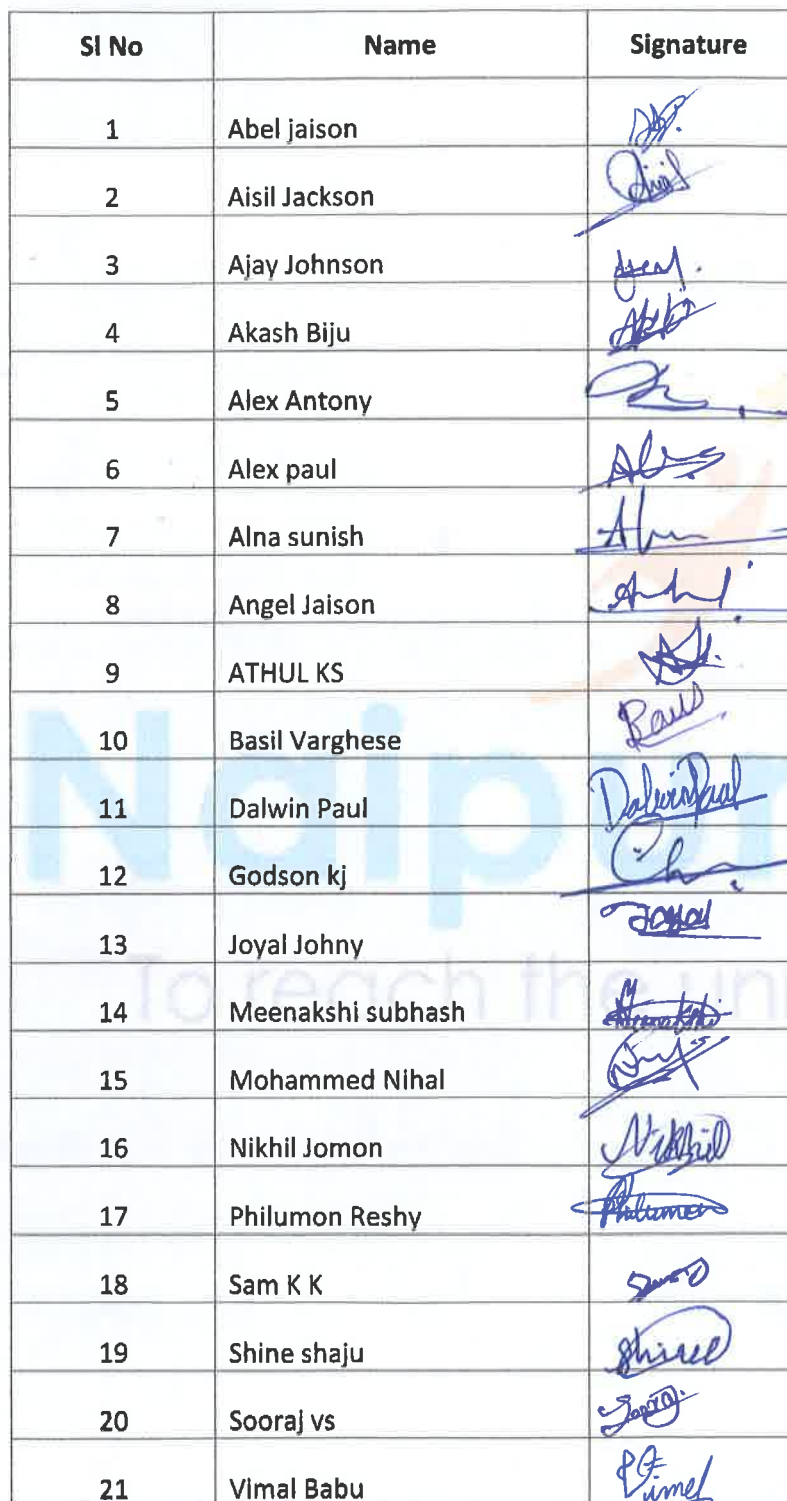 Sl No Name Signature
1 Abel jaison
2 Aisil Jackson
3 Ajay Johnson
4 Akash Biju
5 Alex Antony
6 Alex paul
7 Alna sunish
8 Angel Jaison
9 ATHUL KS
10 Basil Varghese
11 Dalwin Paul DalwinPaul
12 Godson kj
13 Joyal Johny Joyal
14 Meenakshi subhash Meenakshi
15 Mohammed Nihal
16 Nikhil Jomon Nikhil
17 Philumon Reshy Philumon
18 Sam K K
19 Shine shaju
20 Sooraj vs
21 Vimal Babu
Naipun
To reach the